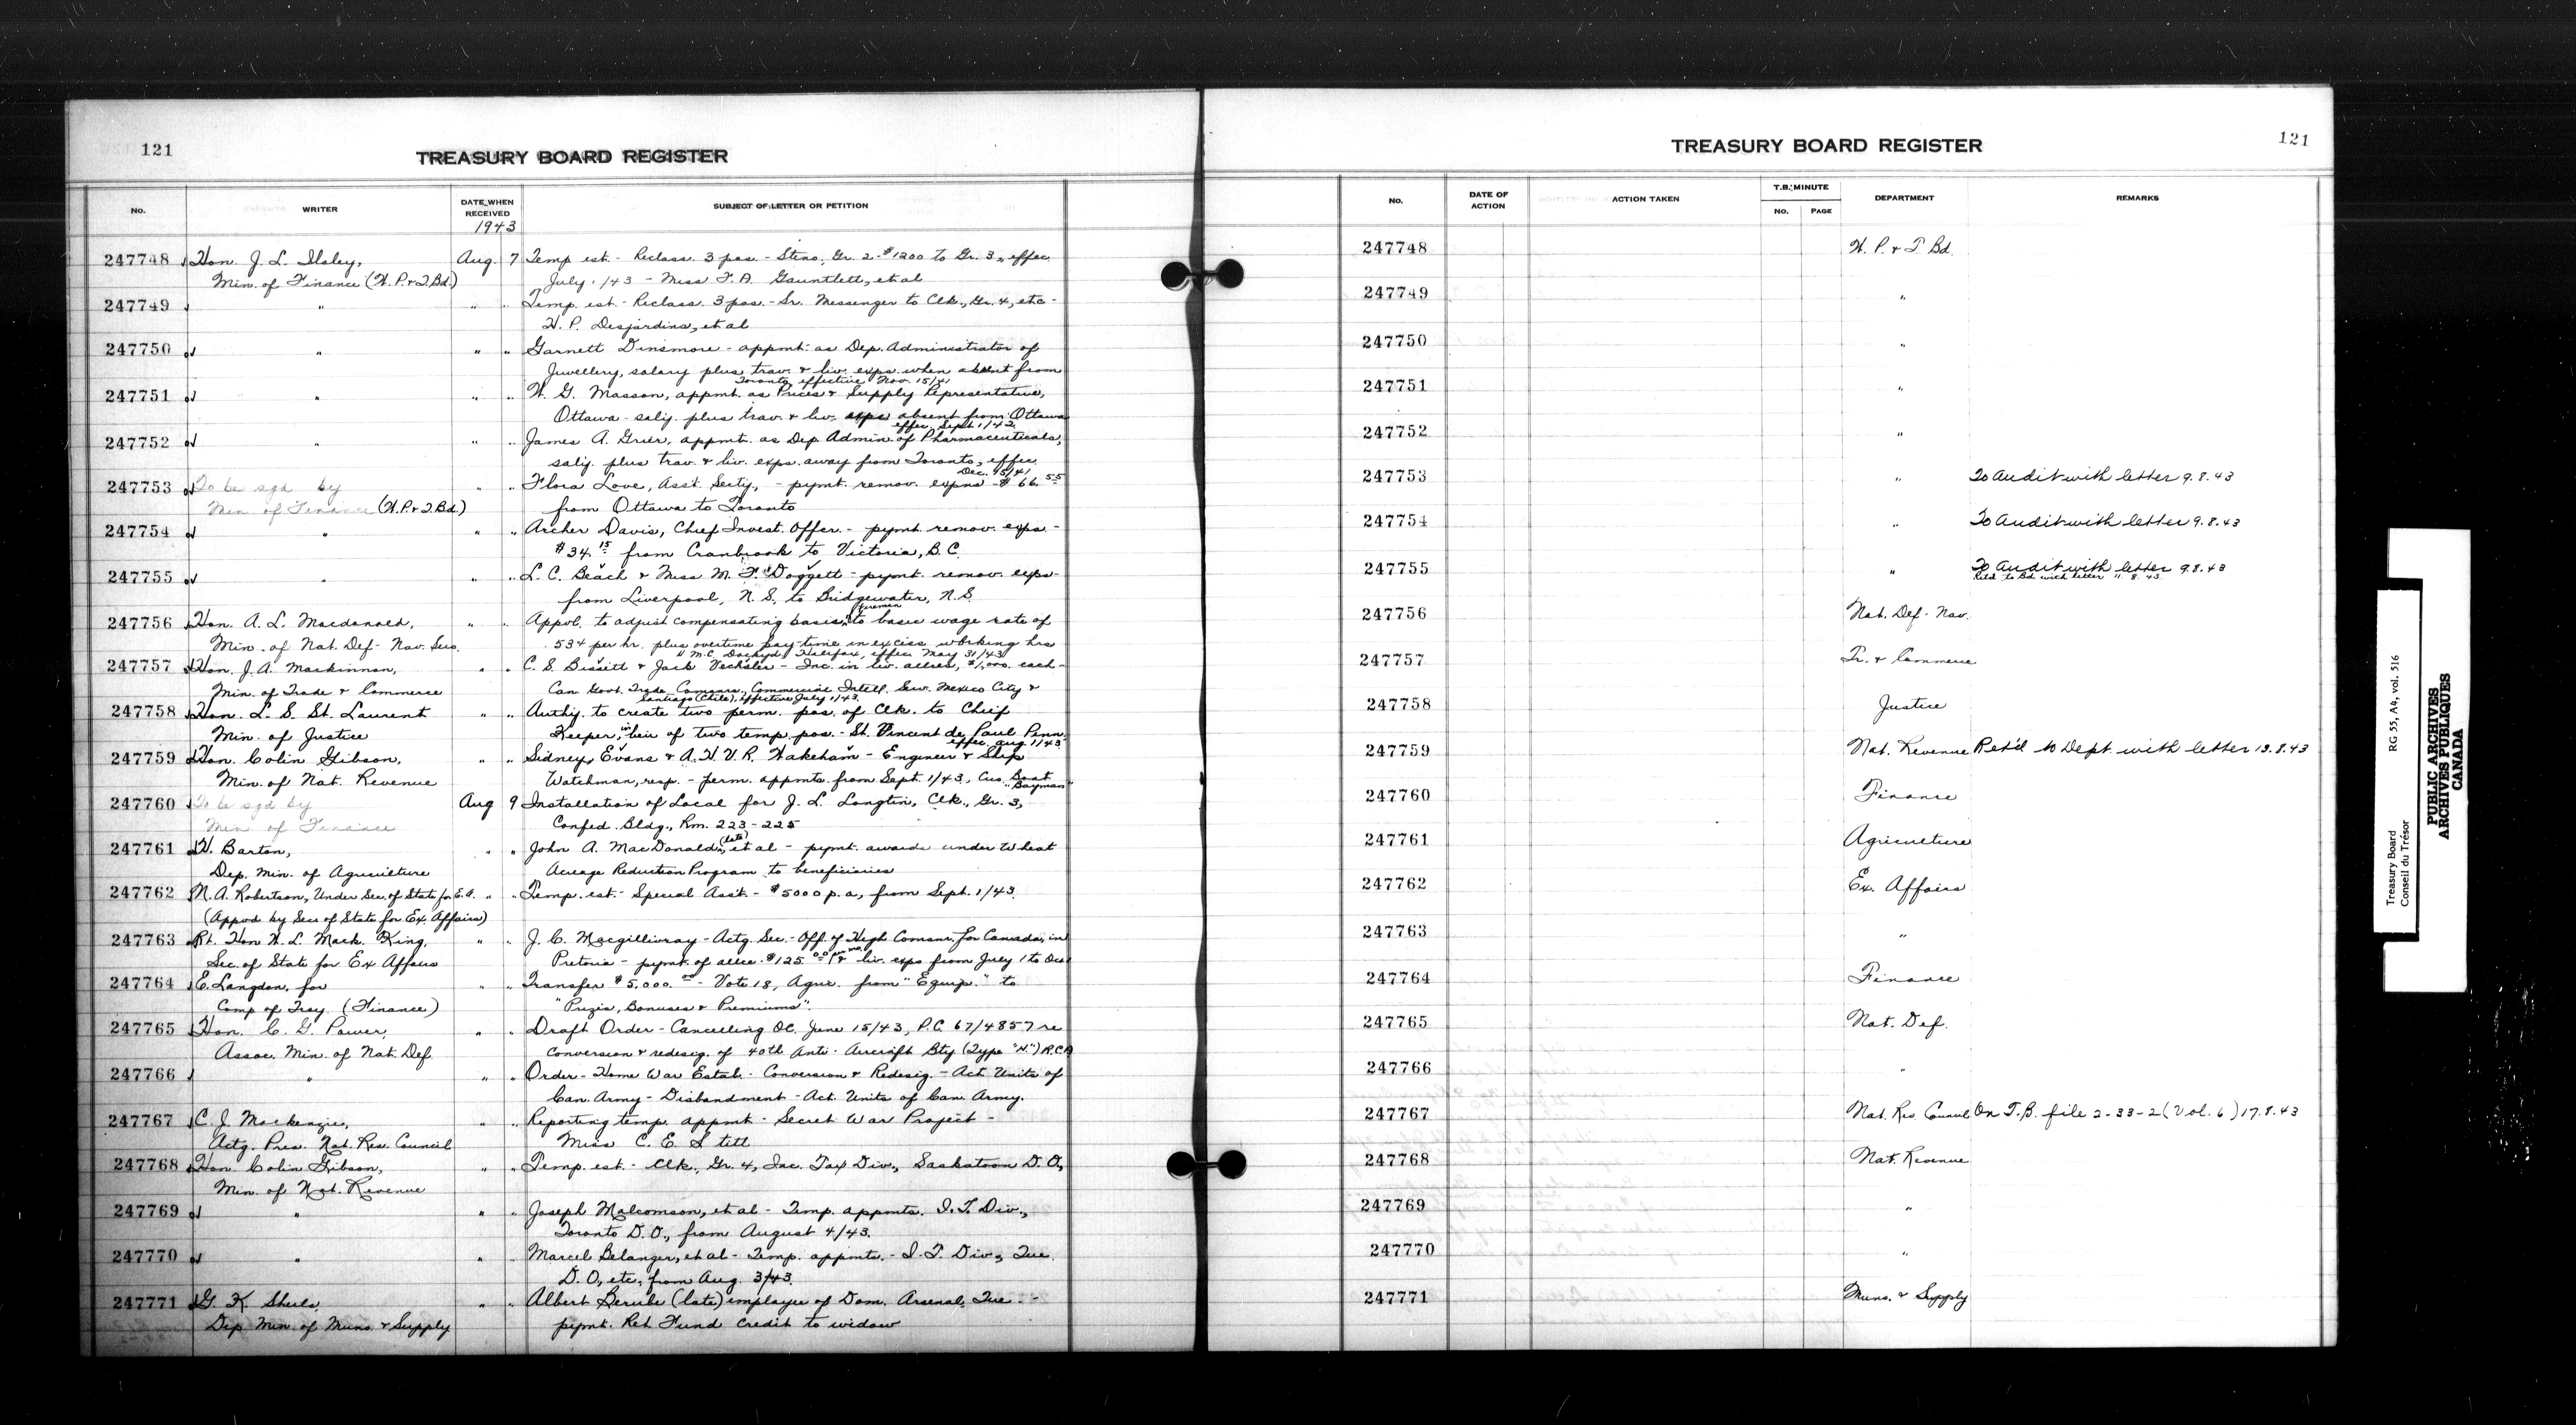 121
TREASURY BOARD REGISTER
No.
WRITER
DATE WHEN RECEIVED
SUBJECT OF LETTER OR PETITION
1943
247748 Hon. J. L. Ilsley, Aug. 7 Temp est. - Reclass. 3 pos. - Steno, Gr. 2 - $1200 to Gr. 3, effec.
Min. of Finance (W.P. & T.Bd.) July 1/43 - Miss F. A. Gauntlett, et al
247749 " " " Temp. est. - Reclass. 3 pos. - Sr. Messenger to Clk., Gr. 4, etc -
H. P. Desjardins, et al
247750 " " " Garnett Dinsmore - appmt. as Dep. Administrator of
Jewellery, salary plus trav. & liv. exps. when absent from
Toronto, effective Nov. 15/41
247751 " " " W. G. Masson, appmt. as Prices & Supply Representative,
Ottawa - saly. plus trav. & liv. exps absent from Ottawa
effec. Sept. 1/42
247752 " " " James A. Grier, appmt. as Dep. Admin. of Pharmaceuticals,
saly. plus trav. & liv. exps. away from Toronto, effec.
Dec. 15/41
247753 To be sgd by " " Flora Love, Asst. Secty., - pymt. remov. expns - $66.55
Min. of Finance (W.P. & T.Bd.) from Ottawa to Toronto
247754 " " " Archer Davis, Chief Invest. Offcr. - pymt. remov. exps -
$34.15 from Cranbrook to Victoria, B.C.
247755 " " " L. C. Beach & Miss M. F. Doggett - pymt. remov. exps -
from Liverpool, N.S., to Bridgewater, N.S.
247756 Hon. A. L. Macdonald, " " Appvl. to adjust compensating basis, firemen to basic wage rate of
Min. of Nat. Def - Nav. Serv. 53¢ per hr. plus overtime pay-time in excess working hrs
H.M.C. Dockyd Halifax, effec May 31/43
247757 Hon. J. A. Mackinnon, " " C. S. Bissett & Jack Vechsler - Inc. in liv. allces, $1,000. each -
Min. of Trade & Commerce Can. Govt. Trade Comsnrs., Commercial Intell. Serv. Mexico City &
Santiago (Chile), effective July 1/43
247758 Hon. L. S. St. Laurent " " Authy. to create two perm. pos. of Clk. to Chief
Min. of Justice Keeper, in lieu of two temp. pos. - St. Vincent de Paul Penn.
effec. Aug. 1/43
247759 Hon. Colin Gibson, " " Sidney Evans & A. H. V. R. Wakeham - Engineer & Ship
Min. of Nat. Revenue Watchman, resp. - perm. appmts. from Sept. 1/43, Cus. Boat
"Bayman"
247760 To be sgd by Aug 9 Installation of Local for J. L. Longtin, Clk., Gr. 3,
Min of Finance Confed. Bldg., Rm. 223-225
247761 H. Barton, " " John A. MacDonald, (late) et al - pymt. awards under Wheat
Dep. Min. of Agriculture Acreage Reduction Program to beneficiaries
247762 N. A. Robertson, Under Sec. of State for E.A. " " Temp. est. - Special Ass't. - $5000 p.a, from Sept. 1/43.
(Appvd by Sec. of State for Ex. Affairs)
247763 Rt. Hon W. L. Mack. King, " " J. C. Macgillivray - Actg. Sec. - Off. of High Comsnr. for Canada, in
Sec. of State for Ex Affairs Pretoria - pymt. of allce. $125.00 per mo. & liv. exps from July 1 to Dec
247764 E. Langdon, for " " Transfer $5,000.00 - Vote 18, Agric. from "Equip." to
Comp of Treas. (Finance) "Prizes, Bonuses & Premiums".
247765 Hon. C. G. Power, " " Draft Order - Cancelling OC. June 15/43, P.C. 67/4857 re
Assoc. Min. of Nat. Def. Conversion & redesig. of 40th Anti-Aircraft Bty (Type "H") R.C.A
247766 " " " Order - Home War Estab. - Conversion & Redesig. - Act. Units of
Can. Army - Disbandment - Act. Units of Can. Army.
247767 C. J. Mackenzie, " " Reporting temp. appmt - Secret War Project -
Actg. Pres. Nat. Res. Council Miss C. E. Stitt
247768 Hon. Colin Gibson, " " Temp. est. - Clk., Gr. 4, Inc. Tax Div., Saskatoon D.O.,
Min. of Nat. Revenue
247769 " " " Joseph Malcomson, et al - Temp. appmts. I.T. Div.,
Toronto D.O., from August 4/43.
247770 " " " Marcel Belanger, et al - Temp. appmts. - I.T. Div., Que.
D.O., etc, from Aug. 3/43.
247771 G. K. Sheils, " " Albert Berube (late) employee of Dom. Arsenal, Que. -
Dep. Min. of Muns. & Supply pymt. Ret. Fund Credit to widow
TREASURY BOARD REGISTER
121
No.
DATE OF ACTION
ACTION TAKEN
T.B. MINUTE
No. PAGE
DEPARTMENT
REMARKS
247748 W. P. & T. Bd.
247749 "
247750 "
247751 "
247752 "
247753 " To Audit with letter 9.8.43
247754 " To Audit with letter 9.8.43
247755 " To Audit with letter 9.8.43
Retd to Bd with letter 11.8.43
247756 Nat. Def - Nav.
247757 Tr. & Commerce
247758 Justice
247759 Nat. Revenue Ret'd to Dept with letter 13.8.43
247760 Finance
247761 Agriculture
247762 Ex. Affairs
247763 "
247764 Finance
247765 Nat. Def.
247766 "
247767 Nat. Res. Council On T.B. file 2-33-2 (Vol. 6) 17.8.43
247768 Nat. Revenue
247769 "
247770 "
247771 Muns. & Supply
Treasury Board RG 55, A4, vol. 516
Conseil du Trésor
PUBLIC ARCHIVES
ARCHIVES PUBLIQUES
CANADA